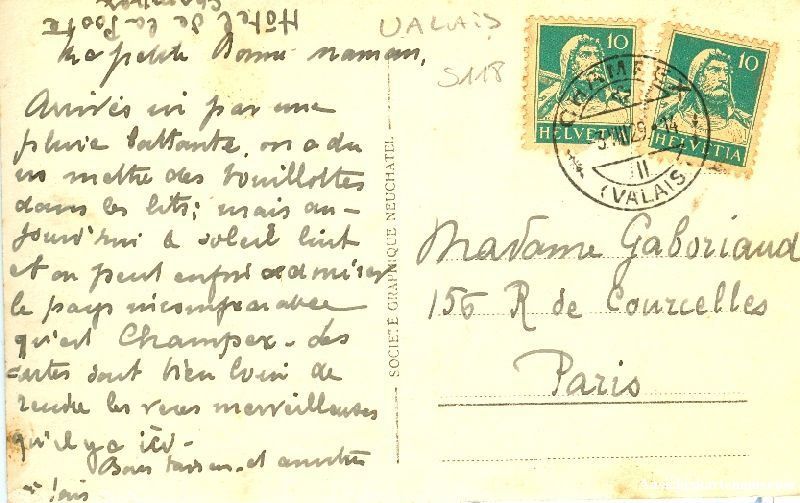 Hôtel de la Poste
Champex
Ma petite Bonne maman,
Arrivés ici par une
pluie battante, on a du
us mettre des bouillottes
dans les lits; mais au-
jourd'hui le soleil luit
et on peut enfin admirer
le pays incomparable
qu'est Champex. Les
cartes sont bien loin de
rendre les vues merveilleuses
qu'il y a ici.
Bons baisers et
VALAIS
S118
10
HELVETIA
10
HELVETIA
CHAMPEX
(VALAIS)
SOCIÉTÉ GRAPHIQUE NEUCHATEL
Madame Gaboriaud
156 R de Courcelles
Paris